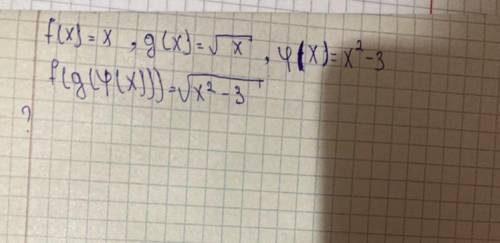 f(x)=x, g(x)=√x, φ(x)=x²-3
f(g(φ(x)))=√x²-3
?